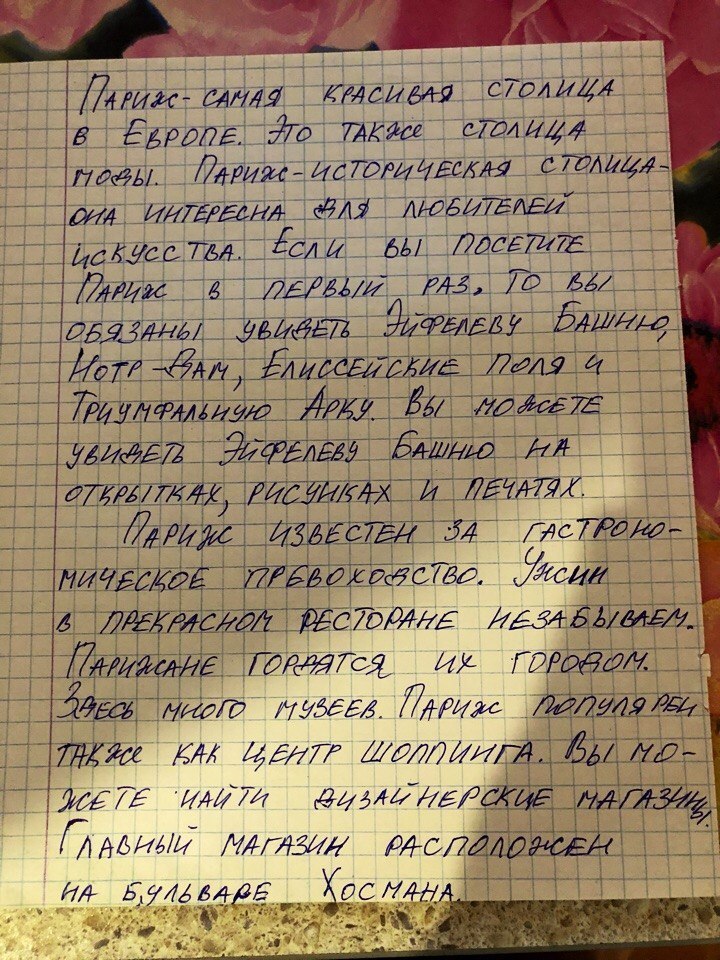 Париж-самая красивая столица
в Европе. Это также столица
моды. Париж-историческая столица-
она интересна для любителей
искусства. Если вы посетите
Париж в первый раз, то вы
обязаны увидеть Эйфелеву Башню,
Нотр-Дам, Елиссейские поля и
Триумфальную Арку. Вы можете
увидеть Эйфелеву Башню на
открытках, рисунках и печатях.
Париж известен за гастроно-
мическое превоходство. Ужин
в прекрасном ресторане незабываем.
Парижане гордятся их городом.
Здесь много музеев. Париж популярен
также как центр шоппинга. Вы мо-
жете найти дизайнерские магазины.
Главный магазин расположен
на бульваре Хосмана.